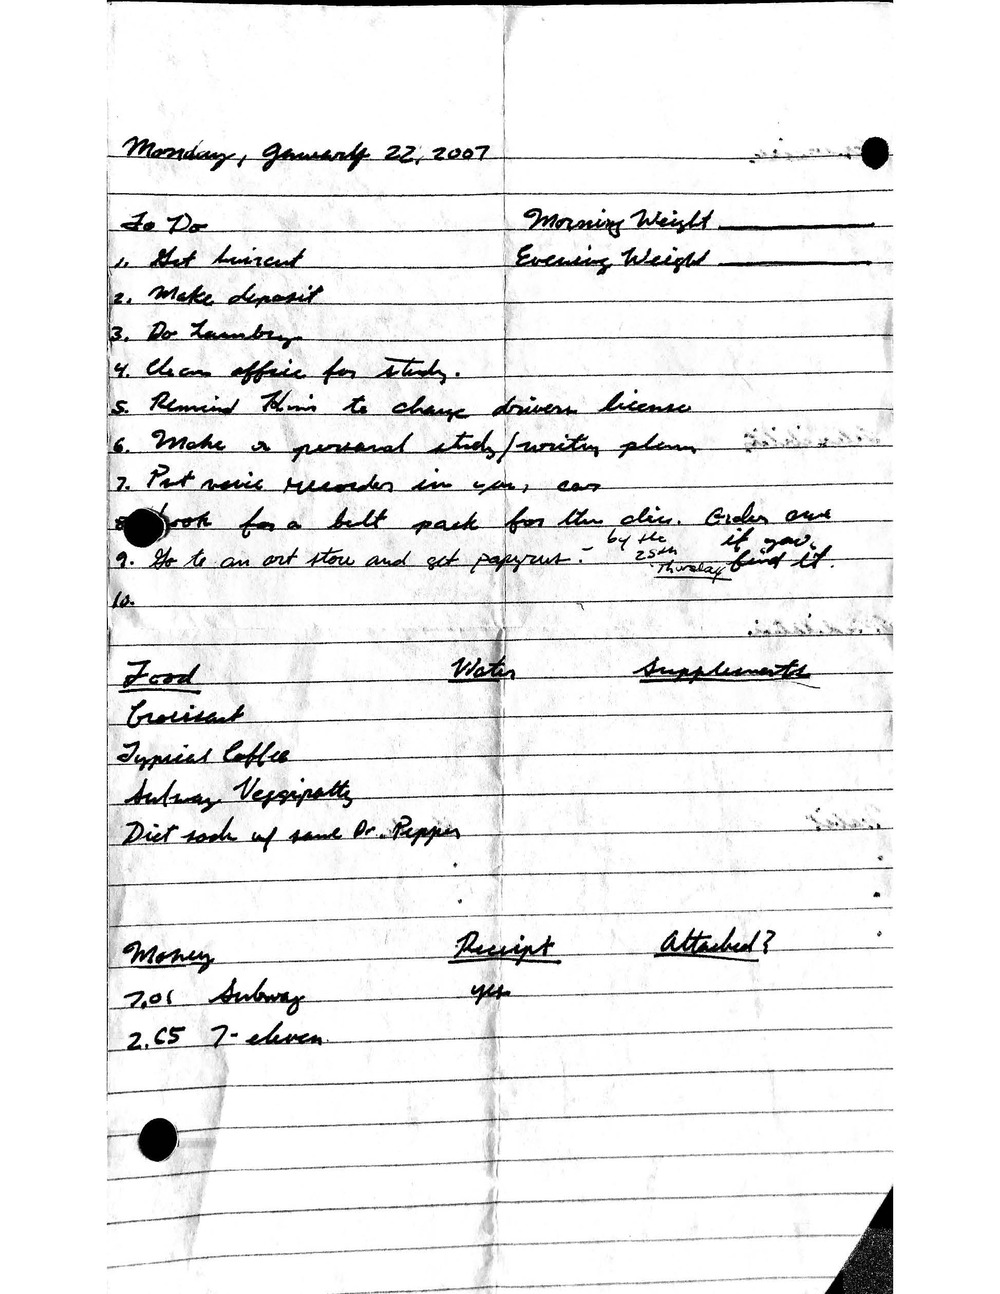 Monday, January 22, 2007
To Do
Morning Weight
1. Get haircut
Evening Weight
2. Make deposit
3. Do Laundry
4. Clean office for study.
5. Remind Kris to change drivers license
6. Make a personal study/writing plan
7. Put voice recorder in car
8. Look for a belt pack for the disc. Order one if you find it.
9. Go to an art store and get papyrus. - by the 25th Thursday
10.
Food Water Supplements
Croissant
Typical Coffee
Subway Veggipatty
Diet soda w/ some Dr. Pepper
Money Receipt Attached?
7.01 Subway yes
2.65 7-eleven